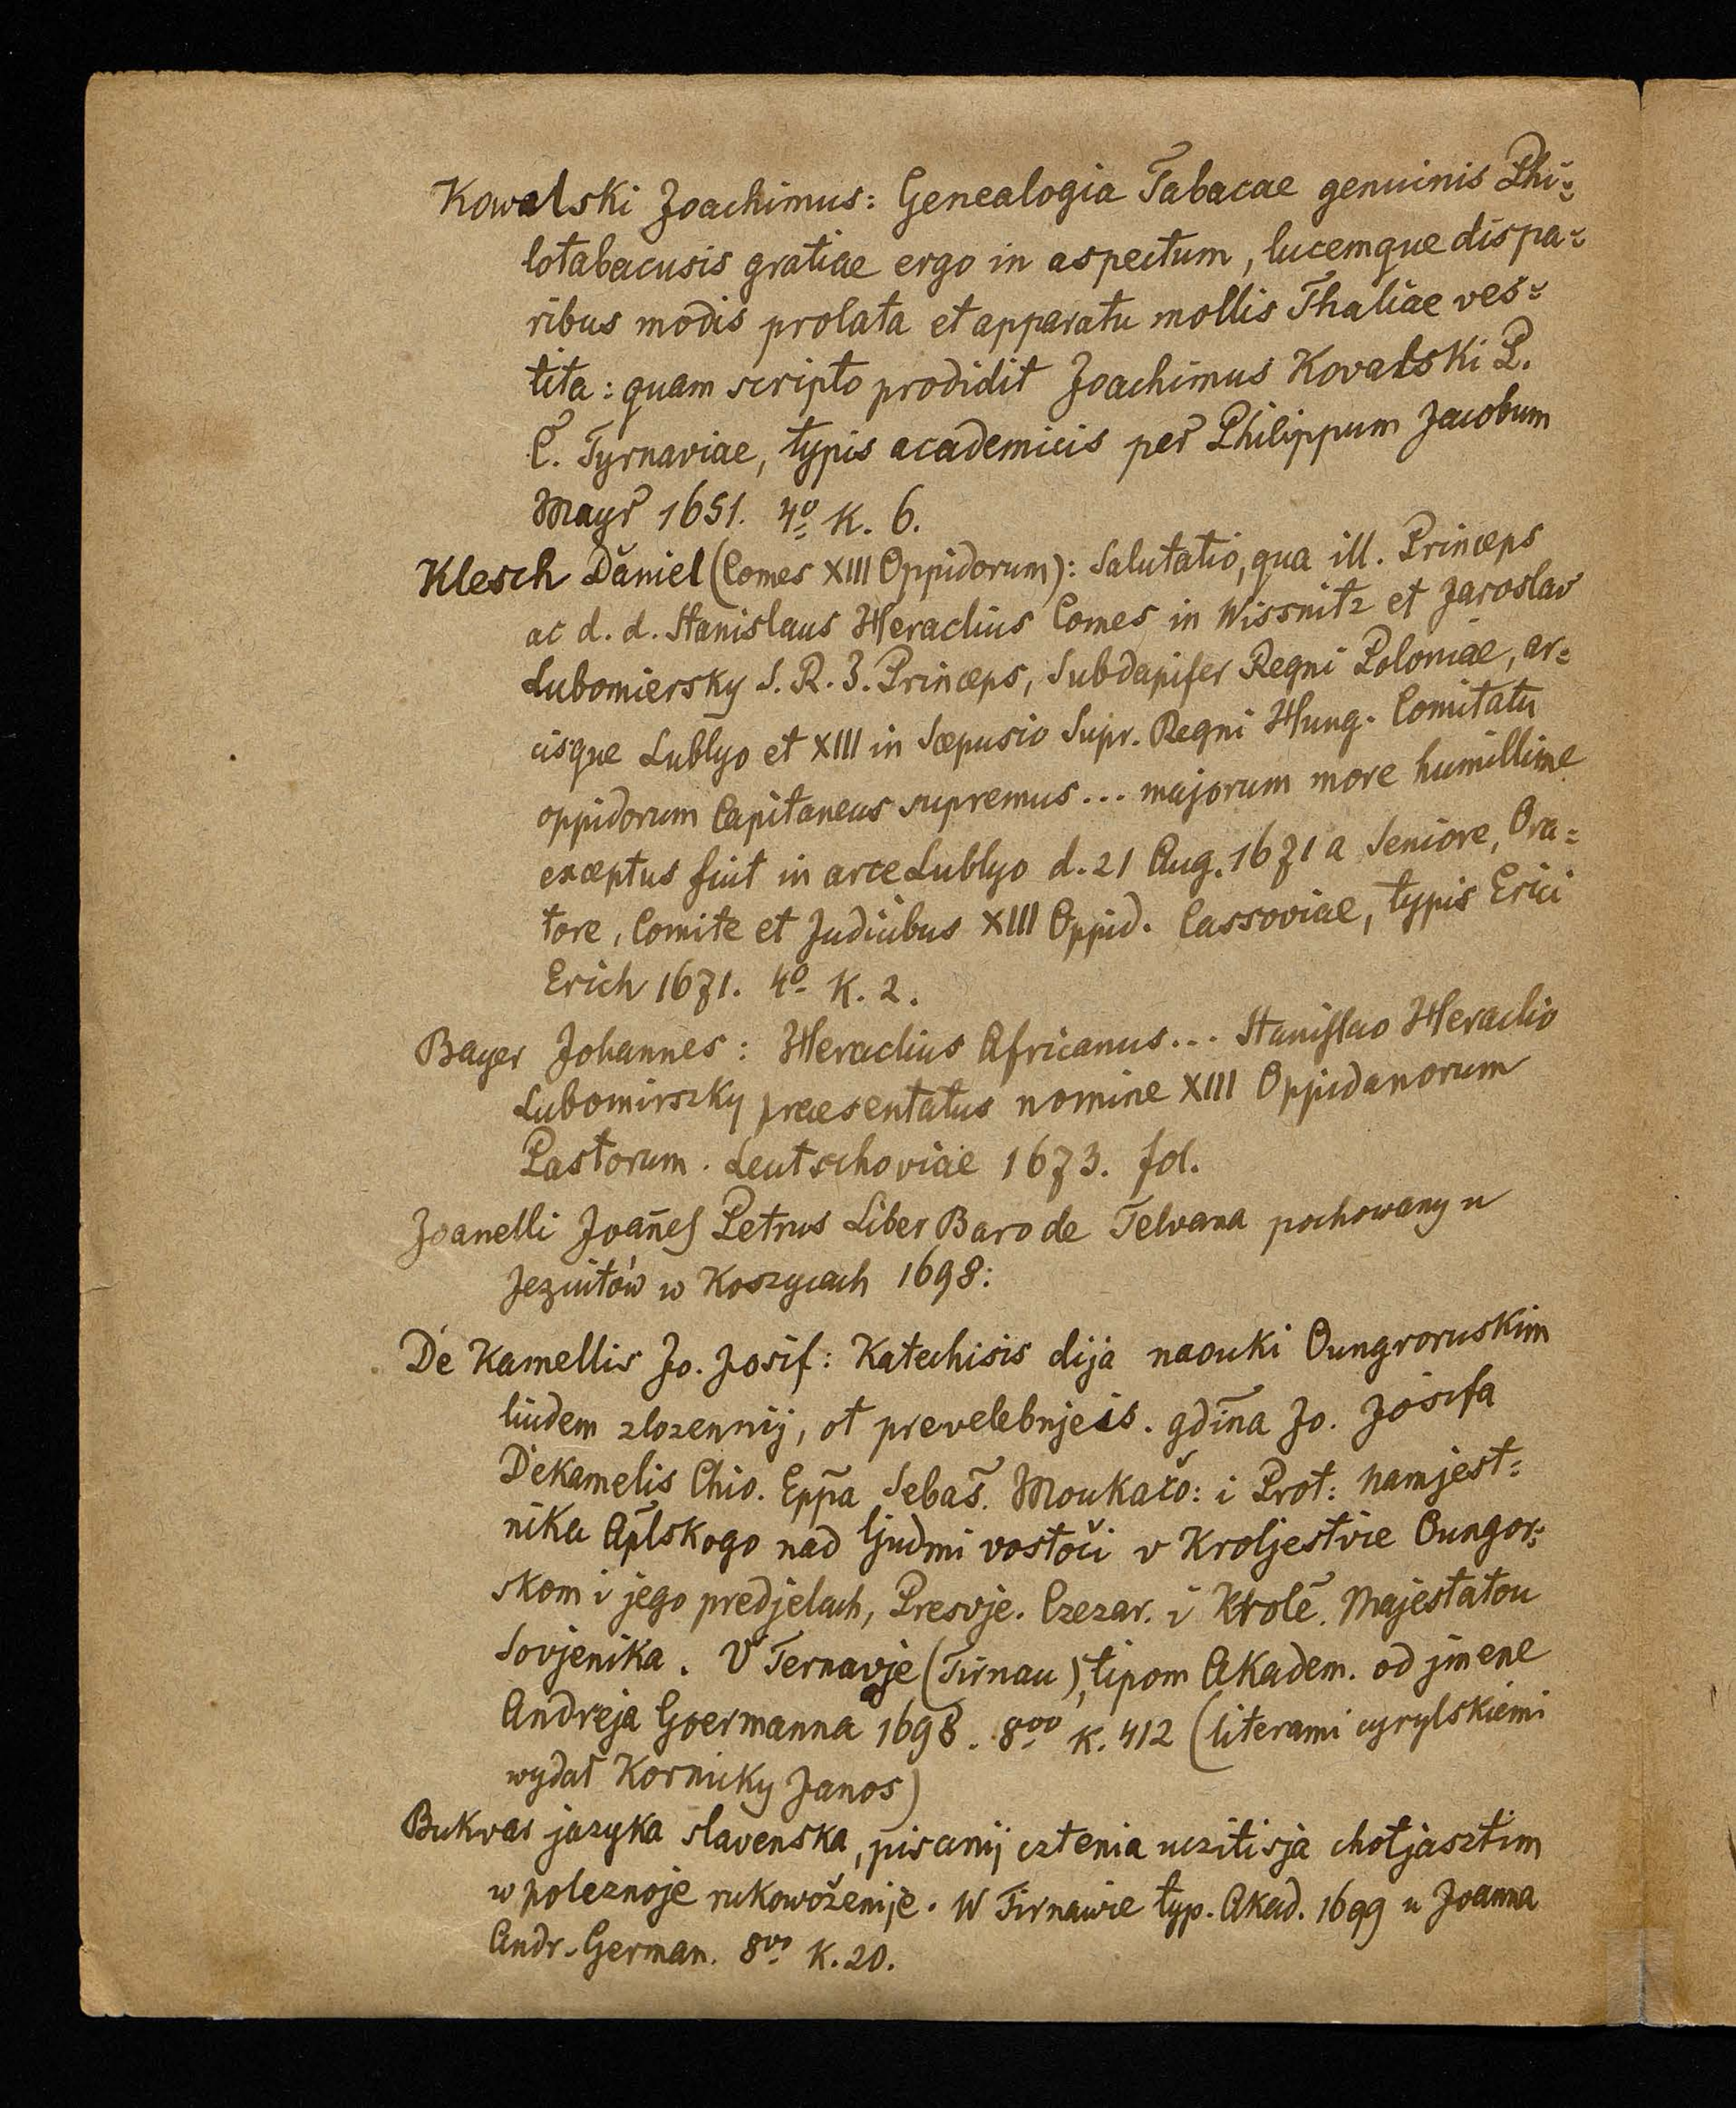 Kowalski Joachimus: Genealogia Tabacae genuinis Phi=
lotabacusis gratiae ergo in aspectum, lucemque dispa=
ribus modis prolata et apparatu mollis Thaliae ves=
tita: quam scripto prodidit Joachimus Kovalski P.
C. Tyrnaviae, typis academicis per Philippum Jacobum
Mayr 1651. 4o K. 6.
Klesch Daniel (Comes XIII Oppidorum): Salutatio, qua ill. Princeps
ac d. d. Stanislaus Heraclius Comes in Wissnitz et Jaroslav
Lubomiersky S. R. I. Princeps, Subdapifer Regni Poloniae, ar=
cisque Lublyo et XIII in Scepusio Supr. Regni Hung. Comitatu
oppidorum Capitaneus supremus... majorum more humillime
exceptus fuit in arce Lublyo d. 21 Aug. 1671 a Seniore, Ora=
tore, Comite et Judicibus XIII Oppid. Cassoviae, typis Erici
Erich 1671. 4o K. 2.
Bayer Johannes: Heraclius Africanus... Stanislao Heraclio
Lubomirszky praesentatus nomine XIII Oppidanorum
Pastorum. Leutschoviae 1673. fol.
Joanelli Joañes Petrus Liber Baro de Telvana pochowany u
Jezuitów w Koszycach 1698:
De Kamellis Jo. Josif: Katechisis dija naouki Oungroruskim
liudem zlozennij, ot prevelebnjeis. gdina Jo. Josifa
Dekamelis Chio. Eppa Sebaš. Moukačo: i Prot: namjest=
nika Aplskogo nad ljudmi vostoči v Kroljestvie Oungor=
skom i jego predjelach, Presvje. Czezar. i Krole. Majestatou
Sovjenika. V Ternavje (Tirnau), tipom Akadem. od jmene
Andreja Goermanna 1698. 8vo K. 412 (literami cyrylskiemi
wydał Kornicky Janos)
Bukvar jazyka slavenska, pisanij cztenia uczitisja chotjasztim
w poleznoje rukowoženije. W Tirnawie typ. Akad. 1699 u Joanna
Andr. German. 8vo K. 20.